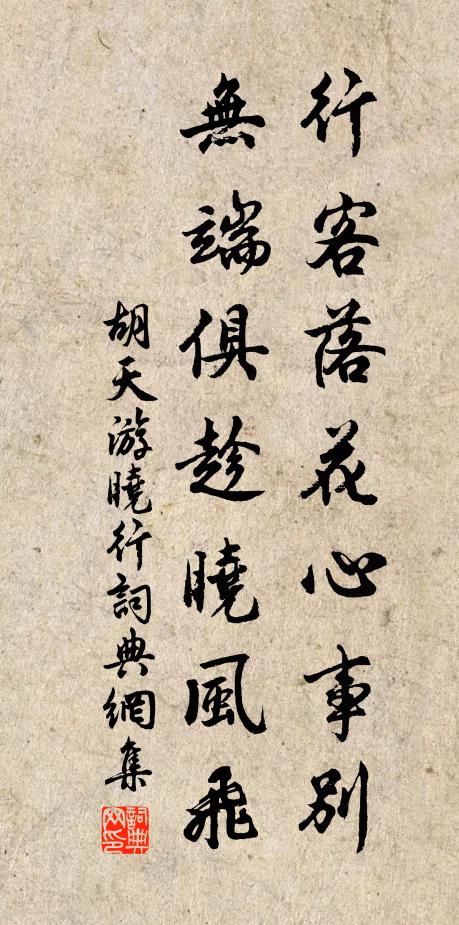 行客落花心事別
無端俱趁曉風飛
胡天游曉行詞典網集
詞典
网印